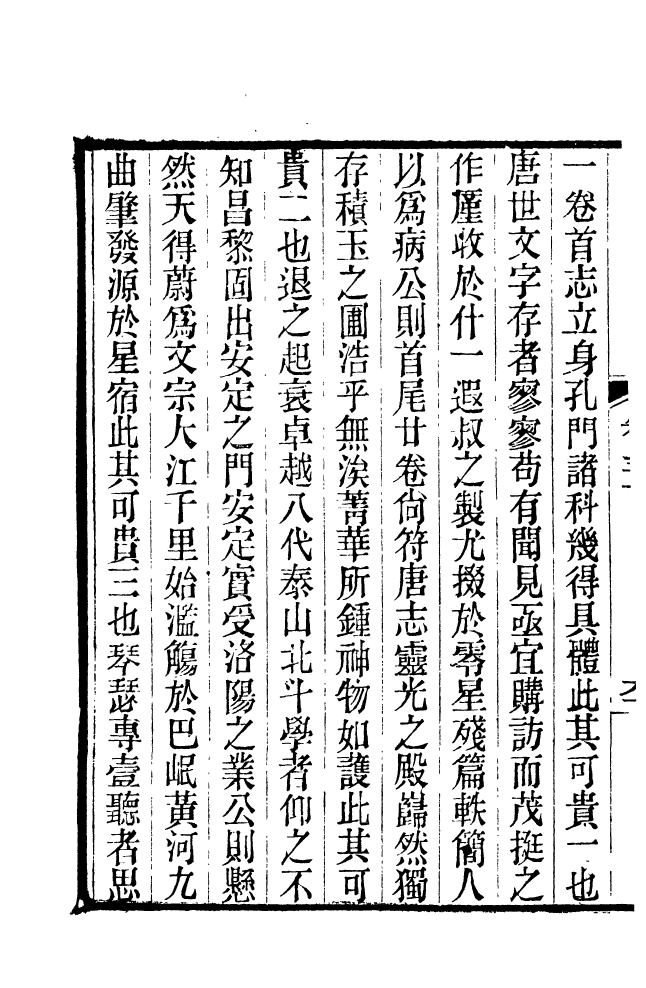 一卷首志立身孔門諸科幾得具體此其可貴一也
唐世文字存者寥寥苟有聞見亟宜購訪而茂挺之
作厪收於什一遐叔之製尤掇於零星殘篇軼簡人
以爲病公則首尾廿卷尙符唐志靈光之殿巋然獨
存積玉之圃浩乎無涘菁華所鍾神物如護此其可
貴二也退之起衰卓越八代泰山北斗學者仰之不
知昌黎固出安定之門安定實受洛陽之業公則懸
然天得蔚爲文宗大江千里始濫觴於巴岷黃河九
曲肇發源於星宿此其可貴三也琴瑟專壹聽者思